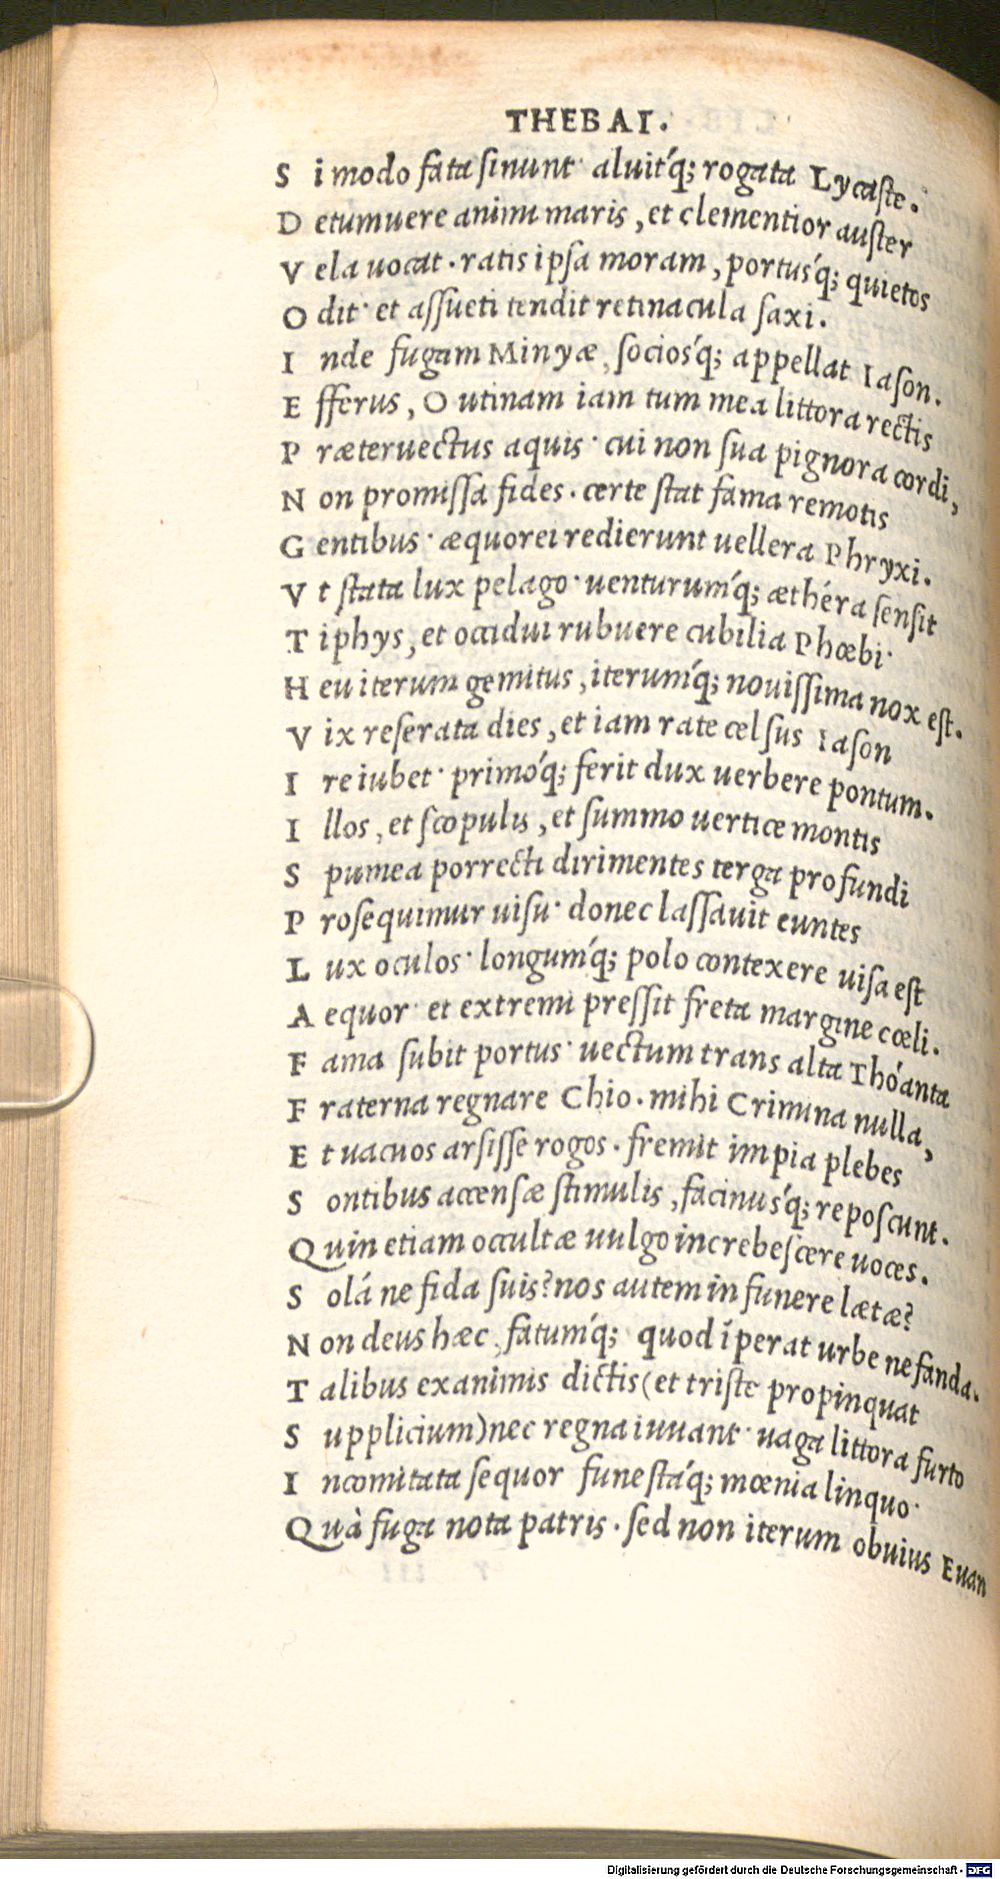 THEBAI.
S i modo fata sinunt· aluitq́; rogata Lycaste.
D etumuere animi maris, et clementior auster
V ela uocat. ratis ipsa moram, portusq́; quietos
O dit· et assueti tendit retinacula saxi.
I nde fugam Minyæ, sociosq́; appellat Iason.
E fferus, O utinam iam tum mea littora rectis
P ræteruectus aquis· cui non sua pignora cordi,
N on promissa fides. certe stat fama remotis
G entibus· æquorei redierunt uellera Phryxi.
V t stata lux pelago· uenturumq́; æthéra sensit
T iphys, et occidui rubuere cubilia Phœbi·
H eu iterum gemitus, iterumq́; nouissima nox est.
V ix reserata dies, et iam rate celsus Iason
I re iubet· primoq́; ferit dux uerbere pontum.
I llos, et scopulis, et summo uertice montis
S pumea porrecti dirimentes terga profundi
P rosequimur uisu· donec lassauit euntes
L ux oculos· longumq́; polo contexere uisa est
A equor· et extremi pressit freta margine cœli.
F ama subit portus· uectum trans alta Thóanta
F raterna regnare Chio. mihi Crimina nulla,
E t uacuos arsisse rogos. fremit impia plebes
S ontibus accensæ stimulis, facinusq́; reposcunt.
Q uin etiam occultæ uulgo increbescere uoces.
S olá ne fida suis? nos autem in funere lætæ?
N on deus hæc, fatumq́; quod īperat urbe nefanda.
T alibus exanimis dictis (et triste propinquat
S upplicium) nec regna iuuant· uaga littora furto
I ncomitata sequor funestáq́; mœnia linquo·
Q uà fuga nota patris. sed non iterum obuius Euan
Digitalisierung gefördert durch die Deutsche Forschungsgemeinschaft - DFG